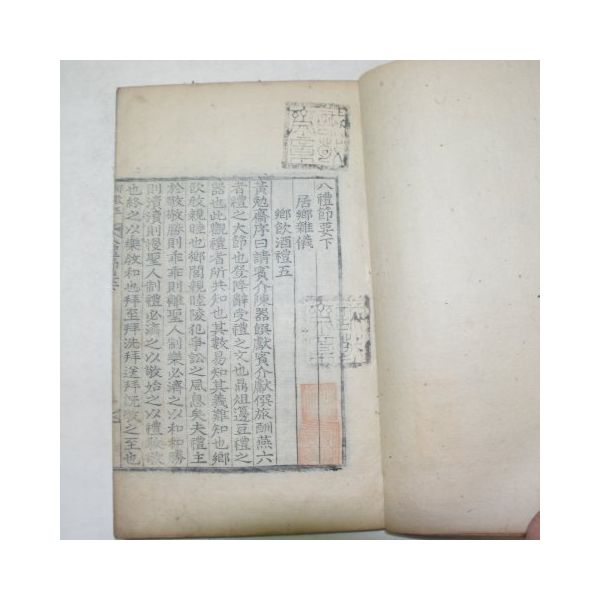 八禮節要下
居鄉雜儀
鄉飮酒禮五
黃勉齋序曰請賓介陳器饌獻賓介獻僎旅酬燕六
者禮之大節也登降辭受禮之文也鼎俎籩豆禮之
器也此觀禮者所共知也其數易知其義難知也鄕
飮敎親睦也鄕閭親睦陵犯爭訟之風息矣夫禮主
於敬敬勝則乖乖則離聖人制樂必濟之以和和勝
則瀆瀆則慢聖人制禮必濟之以敬始之以禮敎敬
也終之以樂敎和也拜至拜洗拜送拜旣敬之至也